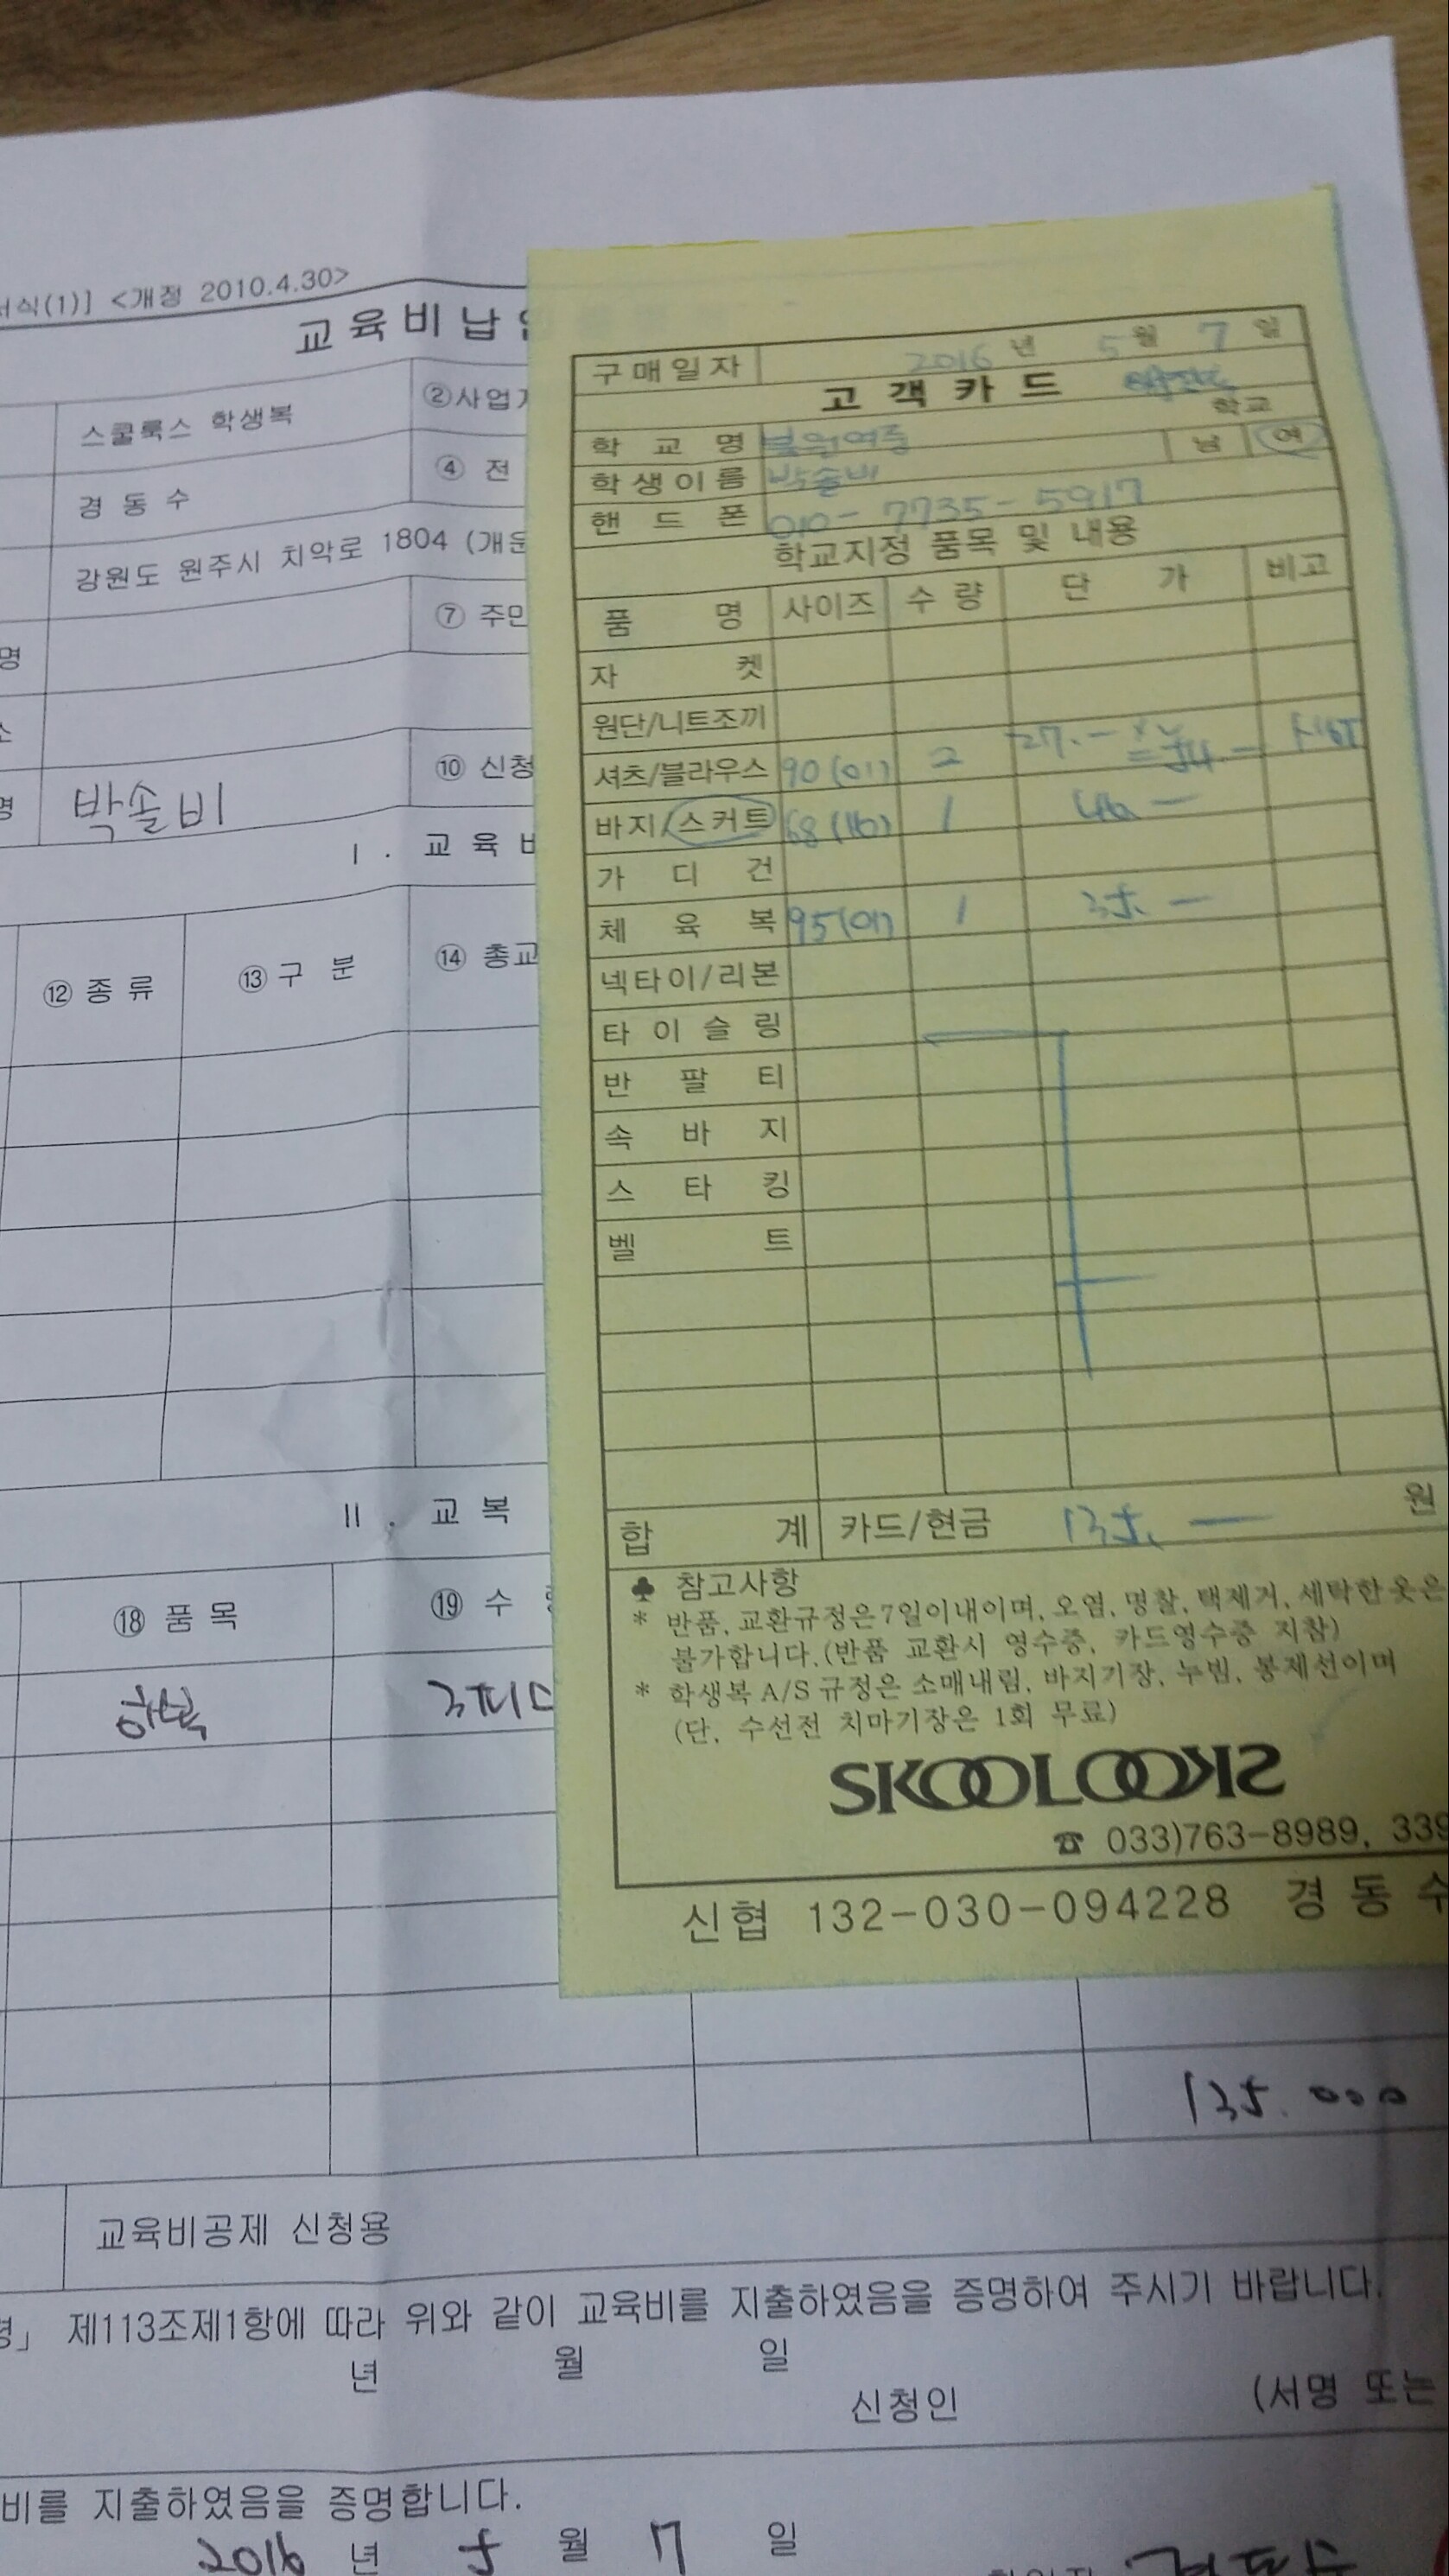 서식(1)] <개정 2010.4.30>
교육비납
스쿨룩스 학생복
②사업
경동수
④ 전
강원도 원주시 치악로 1804 (개운
⑦ 주민
명
소
명
박솔비
⑩ 신청
Ⅰ. 교육비
⑫ 종류
⑬ 구분
⑭ 총교
Ⅱ. 교복
⑱ 품목
⑲ 수
하복
3피
135.000
교육비공제 신청용
령」 제113조제1항에 따라 위와 같이 교육비를 지출하였음을 증명하여 주시기 바랍니다.
년 월 일
신청인 (서명 또는
비를 지출하였음을 증명합니다.
2016 년 5 월 7 일
구매일자 2016 년 5 월 7 일
고객카드
학교
학교명 북원여중 남 여
학생이름 박솔비
핸드폰 010-7735-5917
학교지정 품목 및 내용
품명 사이즈 수량 단가 비고
자켓
원단/니트조끼
셔츠/블라우스 90 2 27.-
바지/스커트 68 1 46 -
가디건
체육복 95 1 35. -
넥타이/리본
타이슬링
반팔티
속바지
스타킹
벨트
합계 카드/현금 135. - 원
♣ 참고사항
* 반품, 교환규정은 7일이내이며, 오염, 명찰, 택제거, 세탁한 옷은
불가합니다.(반품 교환시 영수증, 카드영수증 지참)
* 학생복 A/S 규정은 소매내림, 바지기장, 누빔, 봉제선이며
(단, 수선전 치마기장은 1회 무료)
SKOOLOOKS
☎ 033)763-8989, 339
신협 132-030-094228 경동수